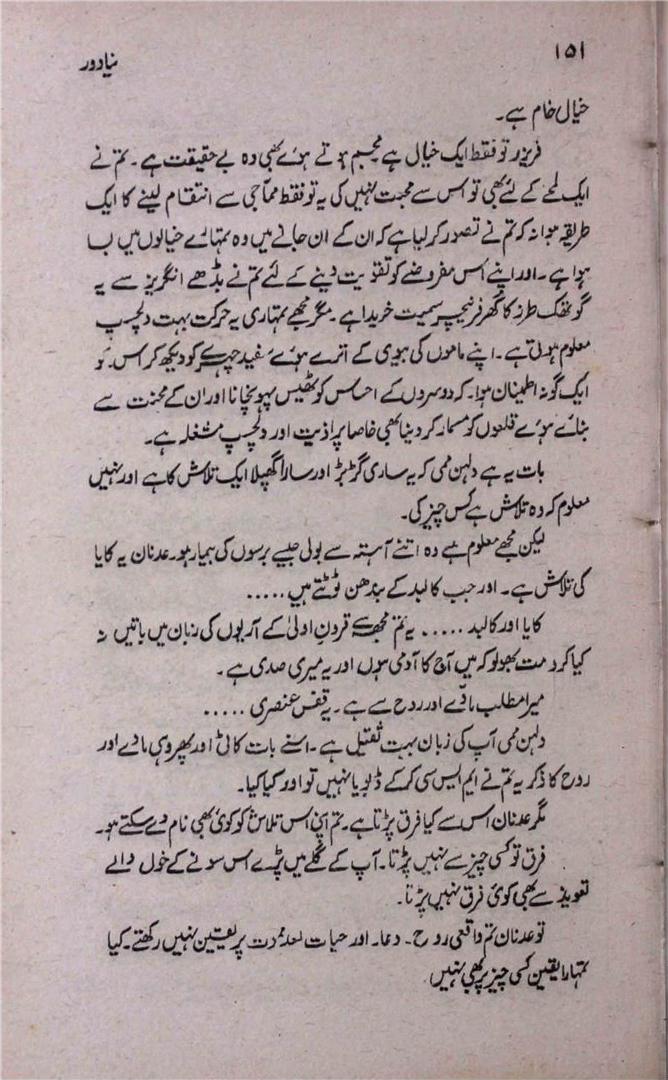 نیا دور
۱۵۱
خیال خام ہے۔
فریزر تو فقط ایک خیال ہے مجسم ہوتے ہوئے بھی وہ بے حقیقت ہے۔ تم نے
ایک لمحے کے لئے بھی تو اس سے محبت نہیں کی یہ تو فقط مماجی سے انتقام لینے کا ایک
طریقہ ہوا نہ کہ تم نے تصور کر لیا ہے کہ ان کے ان جانے میں وہ تمہارے خیالوں میں بسا
ہوا ہے۔ اور اپنے اس مفروضے کو تقویت دینے کے لئے تم نے بڈھے انگریز سے یہ
گوتھک طرز کا گھر فرنیچر سمیت خریدا ہے۔ مگر مجھے تمہاری یہ حرکت بہت دلچسپ
معلوم ہوتی ہے۔ اپنے ماموں کی بیوی کے اترے ہوئے سفید چہرے کو دیکھ کر اس کو
ایک گونہ اطمینان ہوا۔ کہ دوسروں کے احساس کو ٹھیس پہونچانا اور ان کے محنت سے
بنائے ہوئے قلعوں کو مسمار کر دینا بھی خاصا پر اذیت اور دلچسپ مشغلہ ہے۔
بات یہ ہے دلہن ممی کہ یہ ساری گڑبڑ اور سارا گھپلا ایک تلاش کا ہے اور نہیں
معلوم کہ وہ تلاش ہے کس چیز کی۔
لیکن مجھے معلوم ہے وہ اتنے آہستہ سے بولی جیسے برسوں کی بیمار ہو۔ عدنان یہ کایا
کی تلاش ہے۔ اور جب کالبد کے بندھن ٹوٹتے ہیں .....
کایا اور کالبد ..... یہ تم مجھ سے قرون اولیٰ کے آریوں کی زبان میں باتیں نہ
کیا کرو مت بھولو کہ میں آج کا آدمی ہوں اور یہ میری صدی ہے۔
میرا مطلب مادّے اور روح سے ہے۔ یہ قفس عنصری .....
دلہن ممی آپ کی زبان بہت ثقیل ہے۔ اسنے بات کاٹی اور پھر وہی مادے اور
روح کا ذکر یہ تم نے ایم ایس سی کر کے ڈبویا نہیں تو اور کیا کیا۔
مگر عدنان اس سے کیا فرق پڑتا ہے۔ تم اپنی اس تلاش کو کوئی بھی نام دے سکتے ہو۔
فرق تو کسی چیز سے نہیں پڑتا۔ آپ کے گلے میں پڑے اس سونے کے خول والے
تعویذ سے بھی کوئی فرق نہیں پڑتا۔
تو عدنان تم واقعی روح۔ دعا۔ اور حیات بعد ممات پر یقین نہیں رکھتے۔ کیا
تمہارا یقین کسی چیز پر بھی نہیں